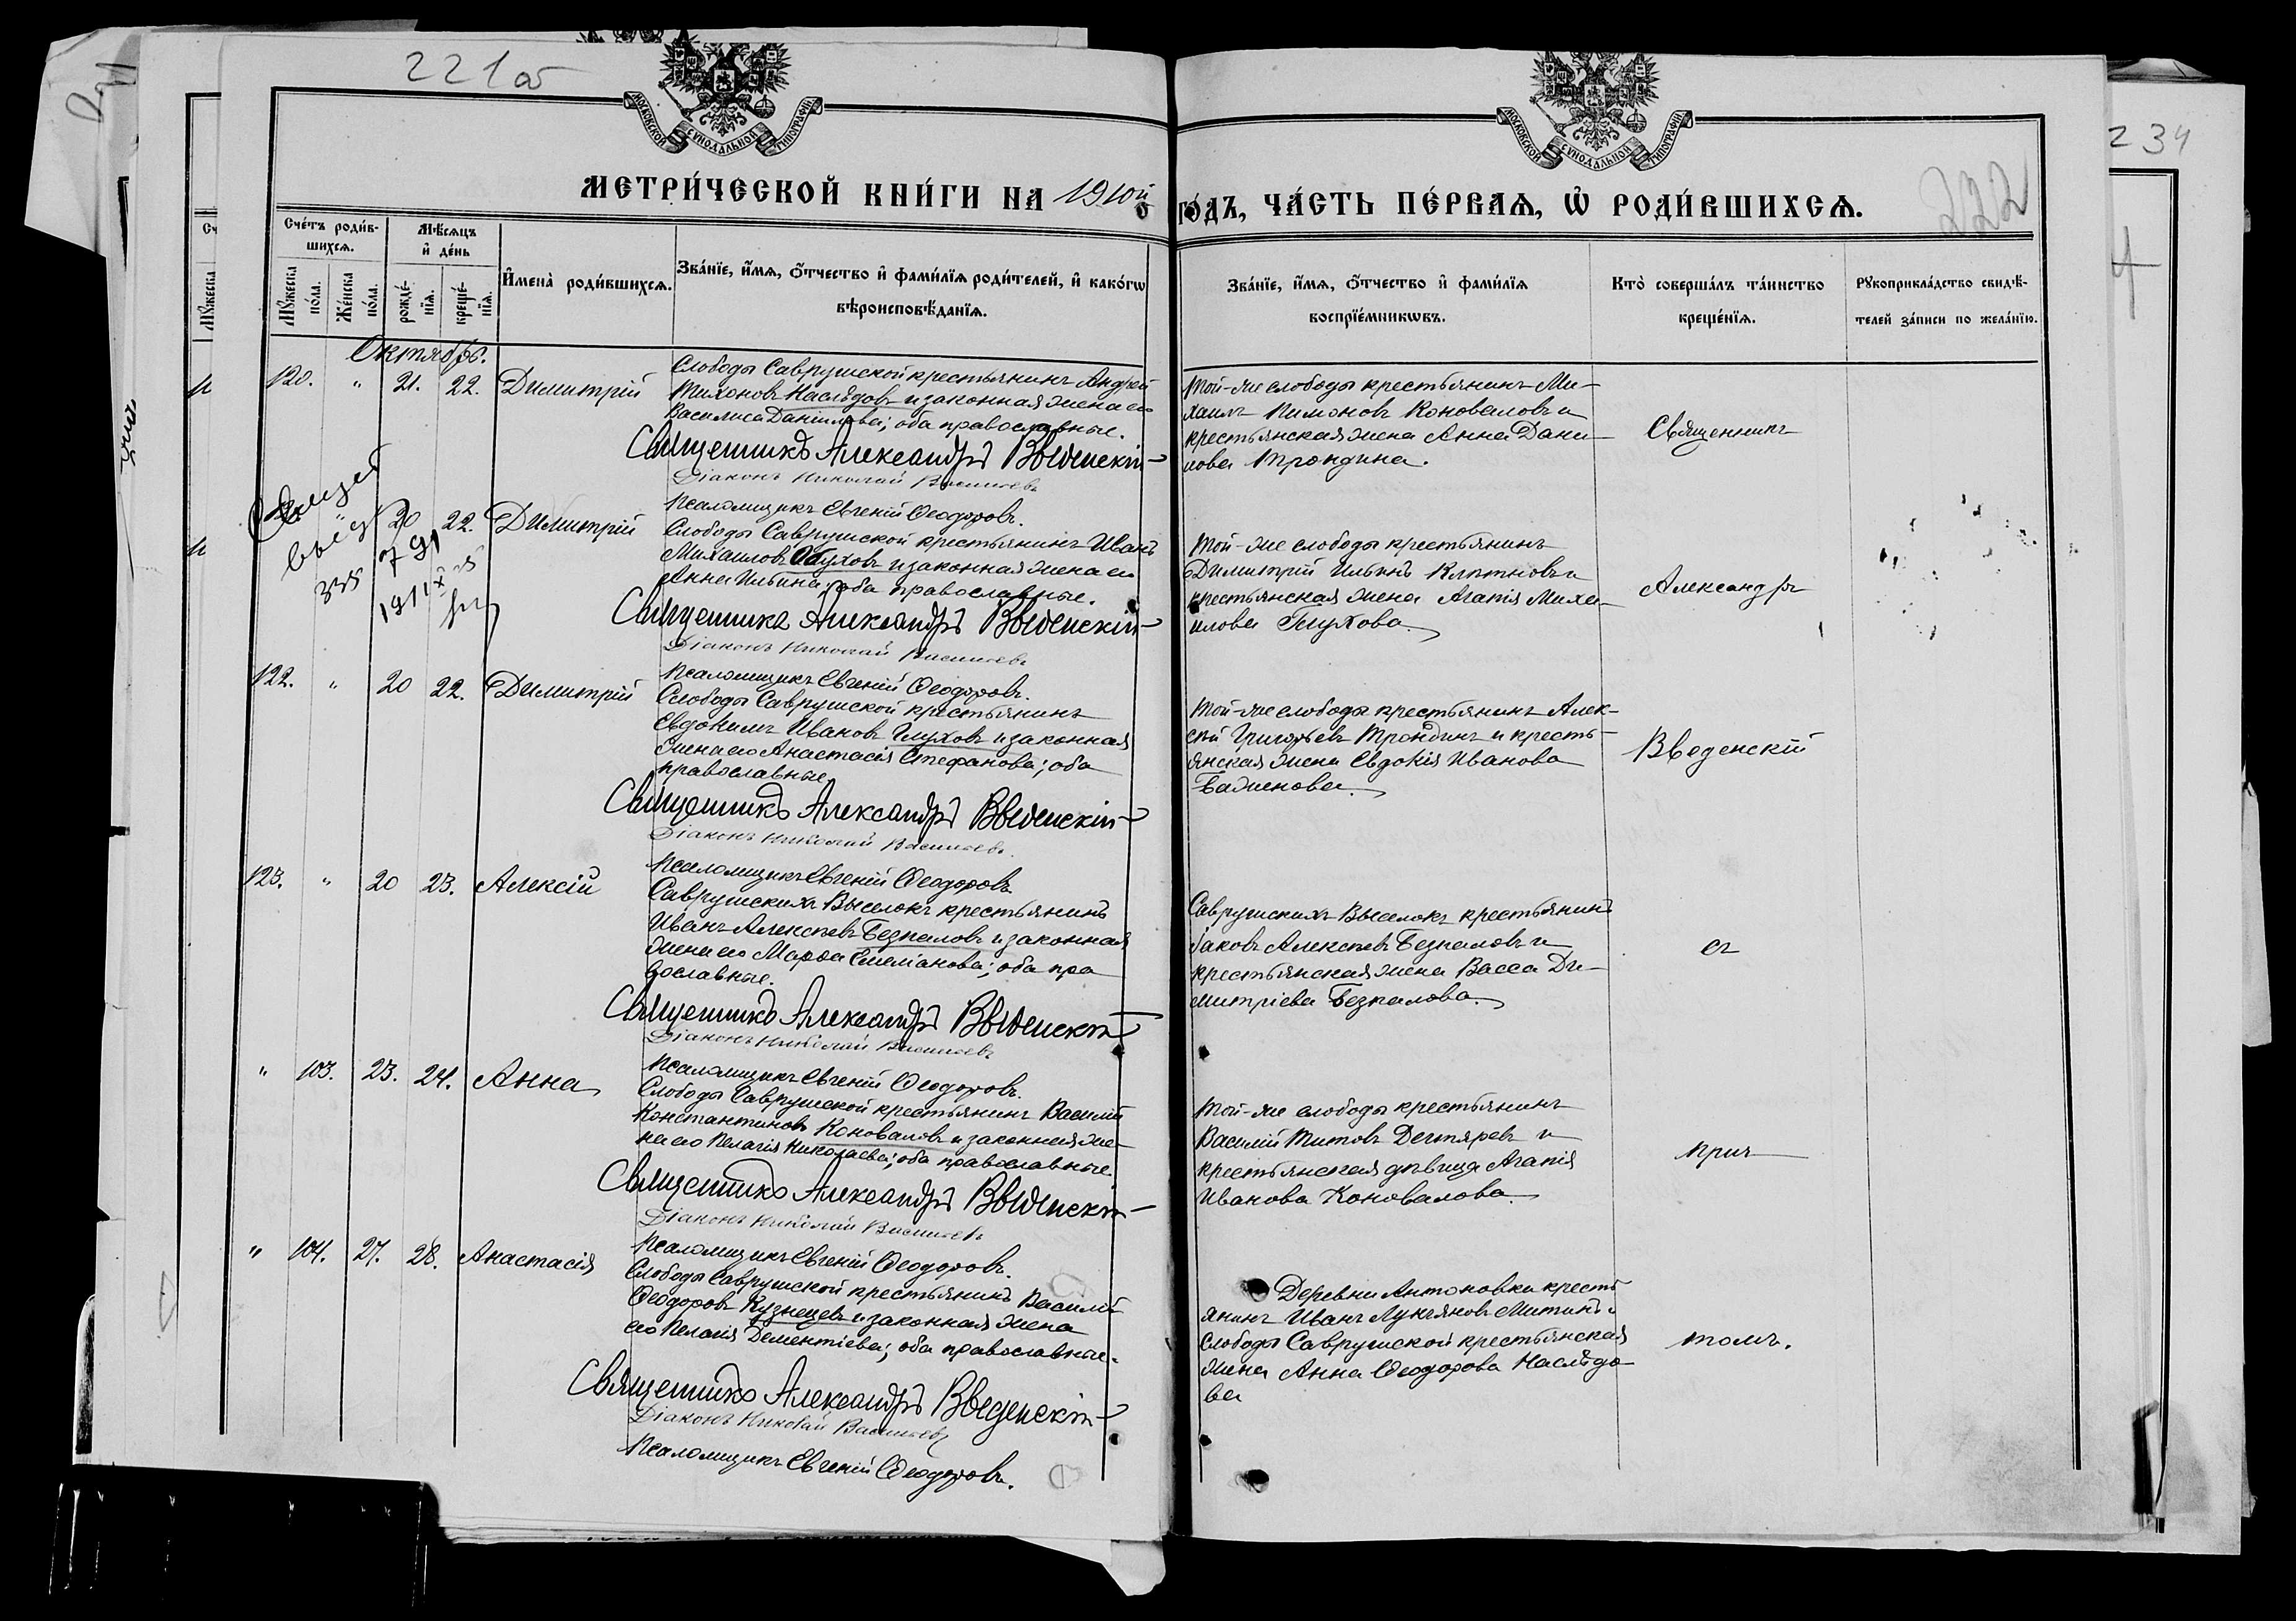 221об
234
МОСКОВСКОЙ СѴНОДАЛЬНОЙ ТИПОГРАФІИ
МОСКОВСКОЙ СѴНОДАЛЬНОЙ ТИПОГРАФІИ
222
МЕТРИ́ЧЕСКОЙ КНИ́ГИ НА 1910й
ГО́ДЪ, ЧА́СТЬ ПЕ́РВАѦ, Ѡ҆ РОДИ́ВШИХСѦ.
Сче́тъ роди́в-
шихсѧ.
Мѣ́сѧцъ
и҆ де́нь
И҆мена̀ роди́вшихсѧ.
Зва́нїе, и҆́мѧ, ѻ҆́тчество и҆ фами́лїѧ роди́телей, и҆ како́гѡ
вѣроисповѣ́данїѧ.
Мꙋ́жеска
по́ла.
Же́нска
по́ла.
рожде́-
нїѧ.
креще́-
нїѧ.
Зва́нїе, и҆́мѧ, ѻ҆́тчество и҆ фами́лїѧ
воспрїе́мникѡвъ.
Кто̀ соверша́лъ та́инство
креще́нїѧ.
Рꙋкоприкла́дство свидѣ́-
телей за́писи по жела́нїю.
Октябрь.
120. " 21. 22. Димитрій
Слободы Саврушской крестьянинъ Андрей
Тихоновъ Наслѣдовъ и законная жена его
Василиса Даніилова; оба православные.
Священникъ Александръ Введенскій
Діаконъ Николай Васильевъ
Псаломщикъ Евгеній Ѳеодоровъ.
Той-же слободы крестьянинъ Ми-
хаилъ Пимоновъ Коноваловъ и
крестьянская жена Анна Дани-
лова Трондина.
Священникъ
" 20 22. Димитрій
335 791
Слободы Саврушской крестьянинъ Иванъ
Михаиловъ Обуховъ и законная жена его
Анна Ильина; оба православные.
Священникъ Александръ Введенскій
Діаконъ Николай Васильевъ
Псаломщикъ Евгеній Ѳеодоровъ.
Той-же слободы крестьянинъ
Димитрій Ильинъ и
крестьянская жена Агапія Миха-
илова Глухова.
Александръ
122. " 20 22. Димитрій
Слободы Саврушской крестьянинъ
Евдокимъ Ивановъ Глуховъ и законная
жена его Анастасія Стефанова; оба
православные.
Священникъ Александръ Введенскій
Діаконъ Николай Васильевъ
Псаломщикъ Евгеній Ѳеодоровъ
Той-же слободы крестьянинъ Алек-
сѣй Григорьевъ Трондинъ и кресть-
янская жена Евдокія Иванова
Баженова.
Введенскій
123. " 20 23. Алексій
Саврушскихъ Выселокъ крестьянинъ
Иванъ Алексѣевъ Безпаловъ и законная
жена его Марѳа Емеліанова; оба пра
вославные.
Священникъ Александръ Введенскій
Діаконъ Николай Васильевъ
Псаломщикъ Евгеній Ѳеодоровъ.
Саврушскихъ Выселокъ крестьянинъ
Іаковъ Алексѣевъ Безпаловъ и
крестьянская жена Васса Ди-
митріева Безпалова.
съ
" 103. 23. 24. Анна
Слободы Саврушской крестьянинъ Василій
Константиновъ Коноваловъ и законная же-
на его Пелагія Николаева; оба православные.
Священникъ Александръ Введенскій
Діаконъ Николай Васильевъ
Псаломщикъ Евгеній Ѳеодоровъ.
Той-же слободы крестьянинъ
Василій Титовъ Дегтяревъ и
крестьянская дѣвица Агапія
Иванова Коновалова.
прич
" 104. 27. 28. Анастасія
Слободы Саврушской крестьянинъ Василій
Ѳеодоровъ Кузнецовъ и законная жена
его Пелагія Дементіева; оба православные.
Священникъ Александръ Введенскій
Діаконъ Николай Васильевъ
Псаломщикъ Евгеній Ѳеодоровъ.
Деревни Антоновки кресть
янинъ Иванъ Лукьяновъ Митинъ и
слободы Саврушской крестьянская
жена Анна Ѳеодорова Наслѣдо-
ва
томъ.